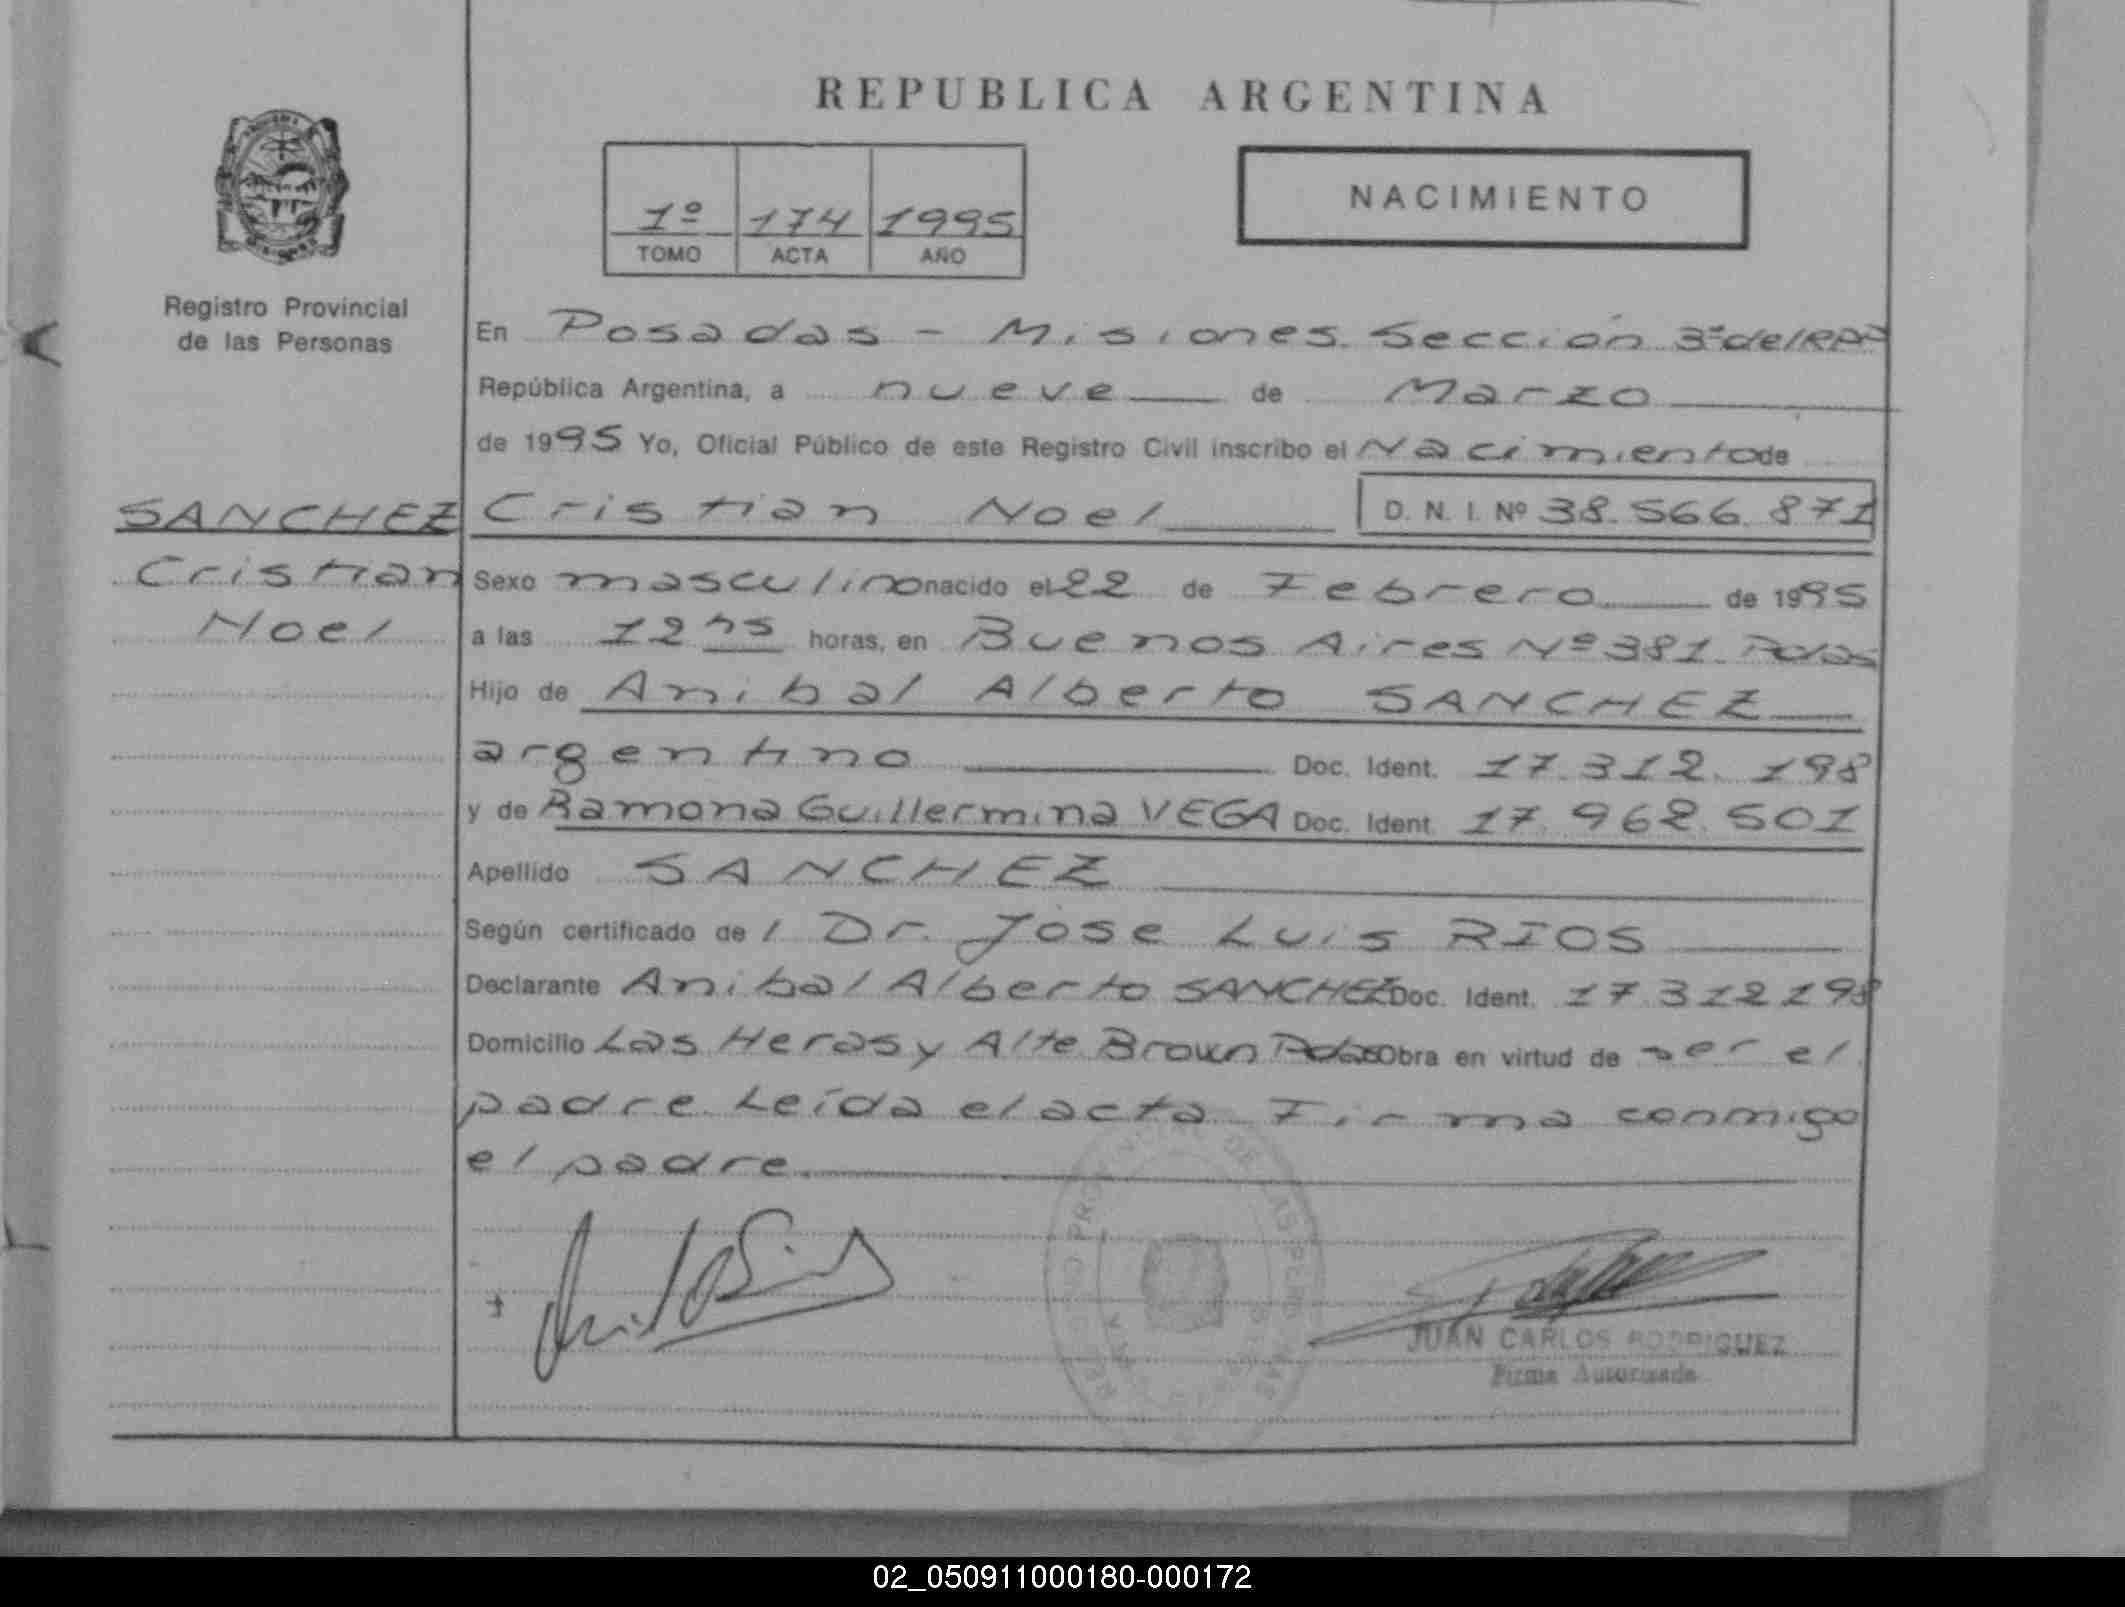 REPUBLICA ARGENTINA
1º 174 1995
TOMO ACTA AÑO
NACIMIENTO
Registro Provincial
de las Personas
SANCHEZ
Cristian
Noel
En Posadas - Misiones. Sección 3ª del RPP
República Argentina, a nueve de Marzo
de 1995 Yo, Oficial Público de este Registro Civil inscribo el Nacimiento de
Cristian Noel D. N. I. Nº 38.566.871
Sexo masculino nacido el 22 de Febrero de 1995
a las 12 hs horas, en Buenos Aires Nº 381. Pdas
Hijo de Anibal Alberto SANCHEZ
argentino Doc. Ident. 17.312.198
y de Ramona Guillermina VEGA Doc. Ident. 17.962.501
Apellido SANCHEZ
Según certificado de l Dr. Jose Luis RIOS
Declarante Anibal Alberto SANCHEZ Doc. Ident. 17.312.198
Domicilio Las Heras y Alte Brown Pdas Obra en virtud de ser el
padre. Leída el acta Firma conmigo
el padre.
JUAN CARLOS RODRIGUEZ
Firma Autorizada
02_050911000180-000172